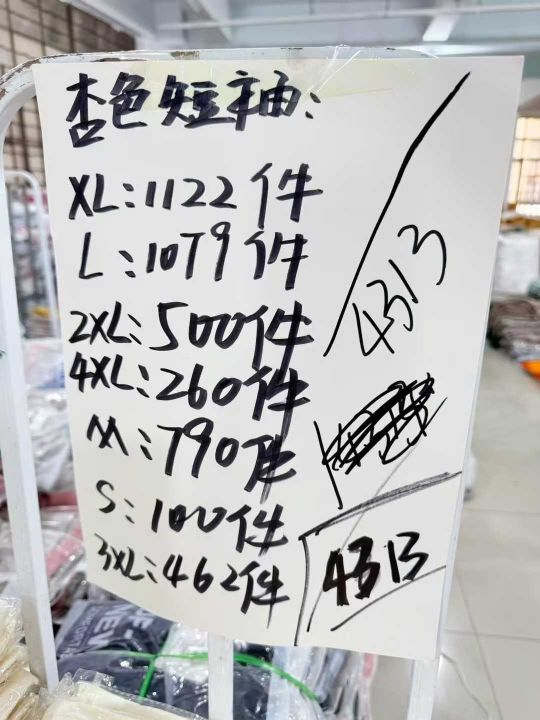 杏色短袖:
XL:1122件
L:1079件
2XL:500件
4XL:260件
M:790件
S:100件
3XL:462件
4313
4313
NEW